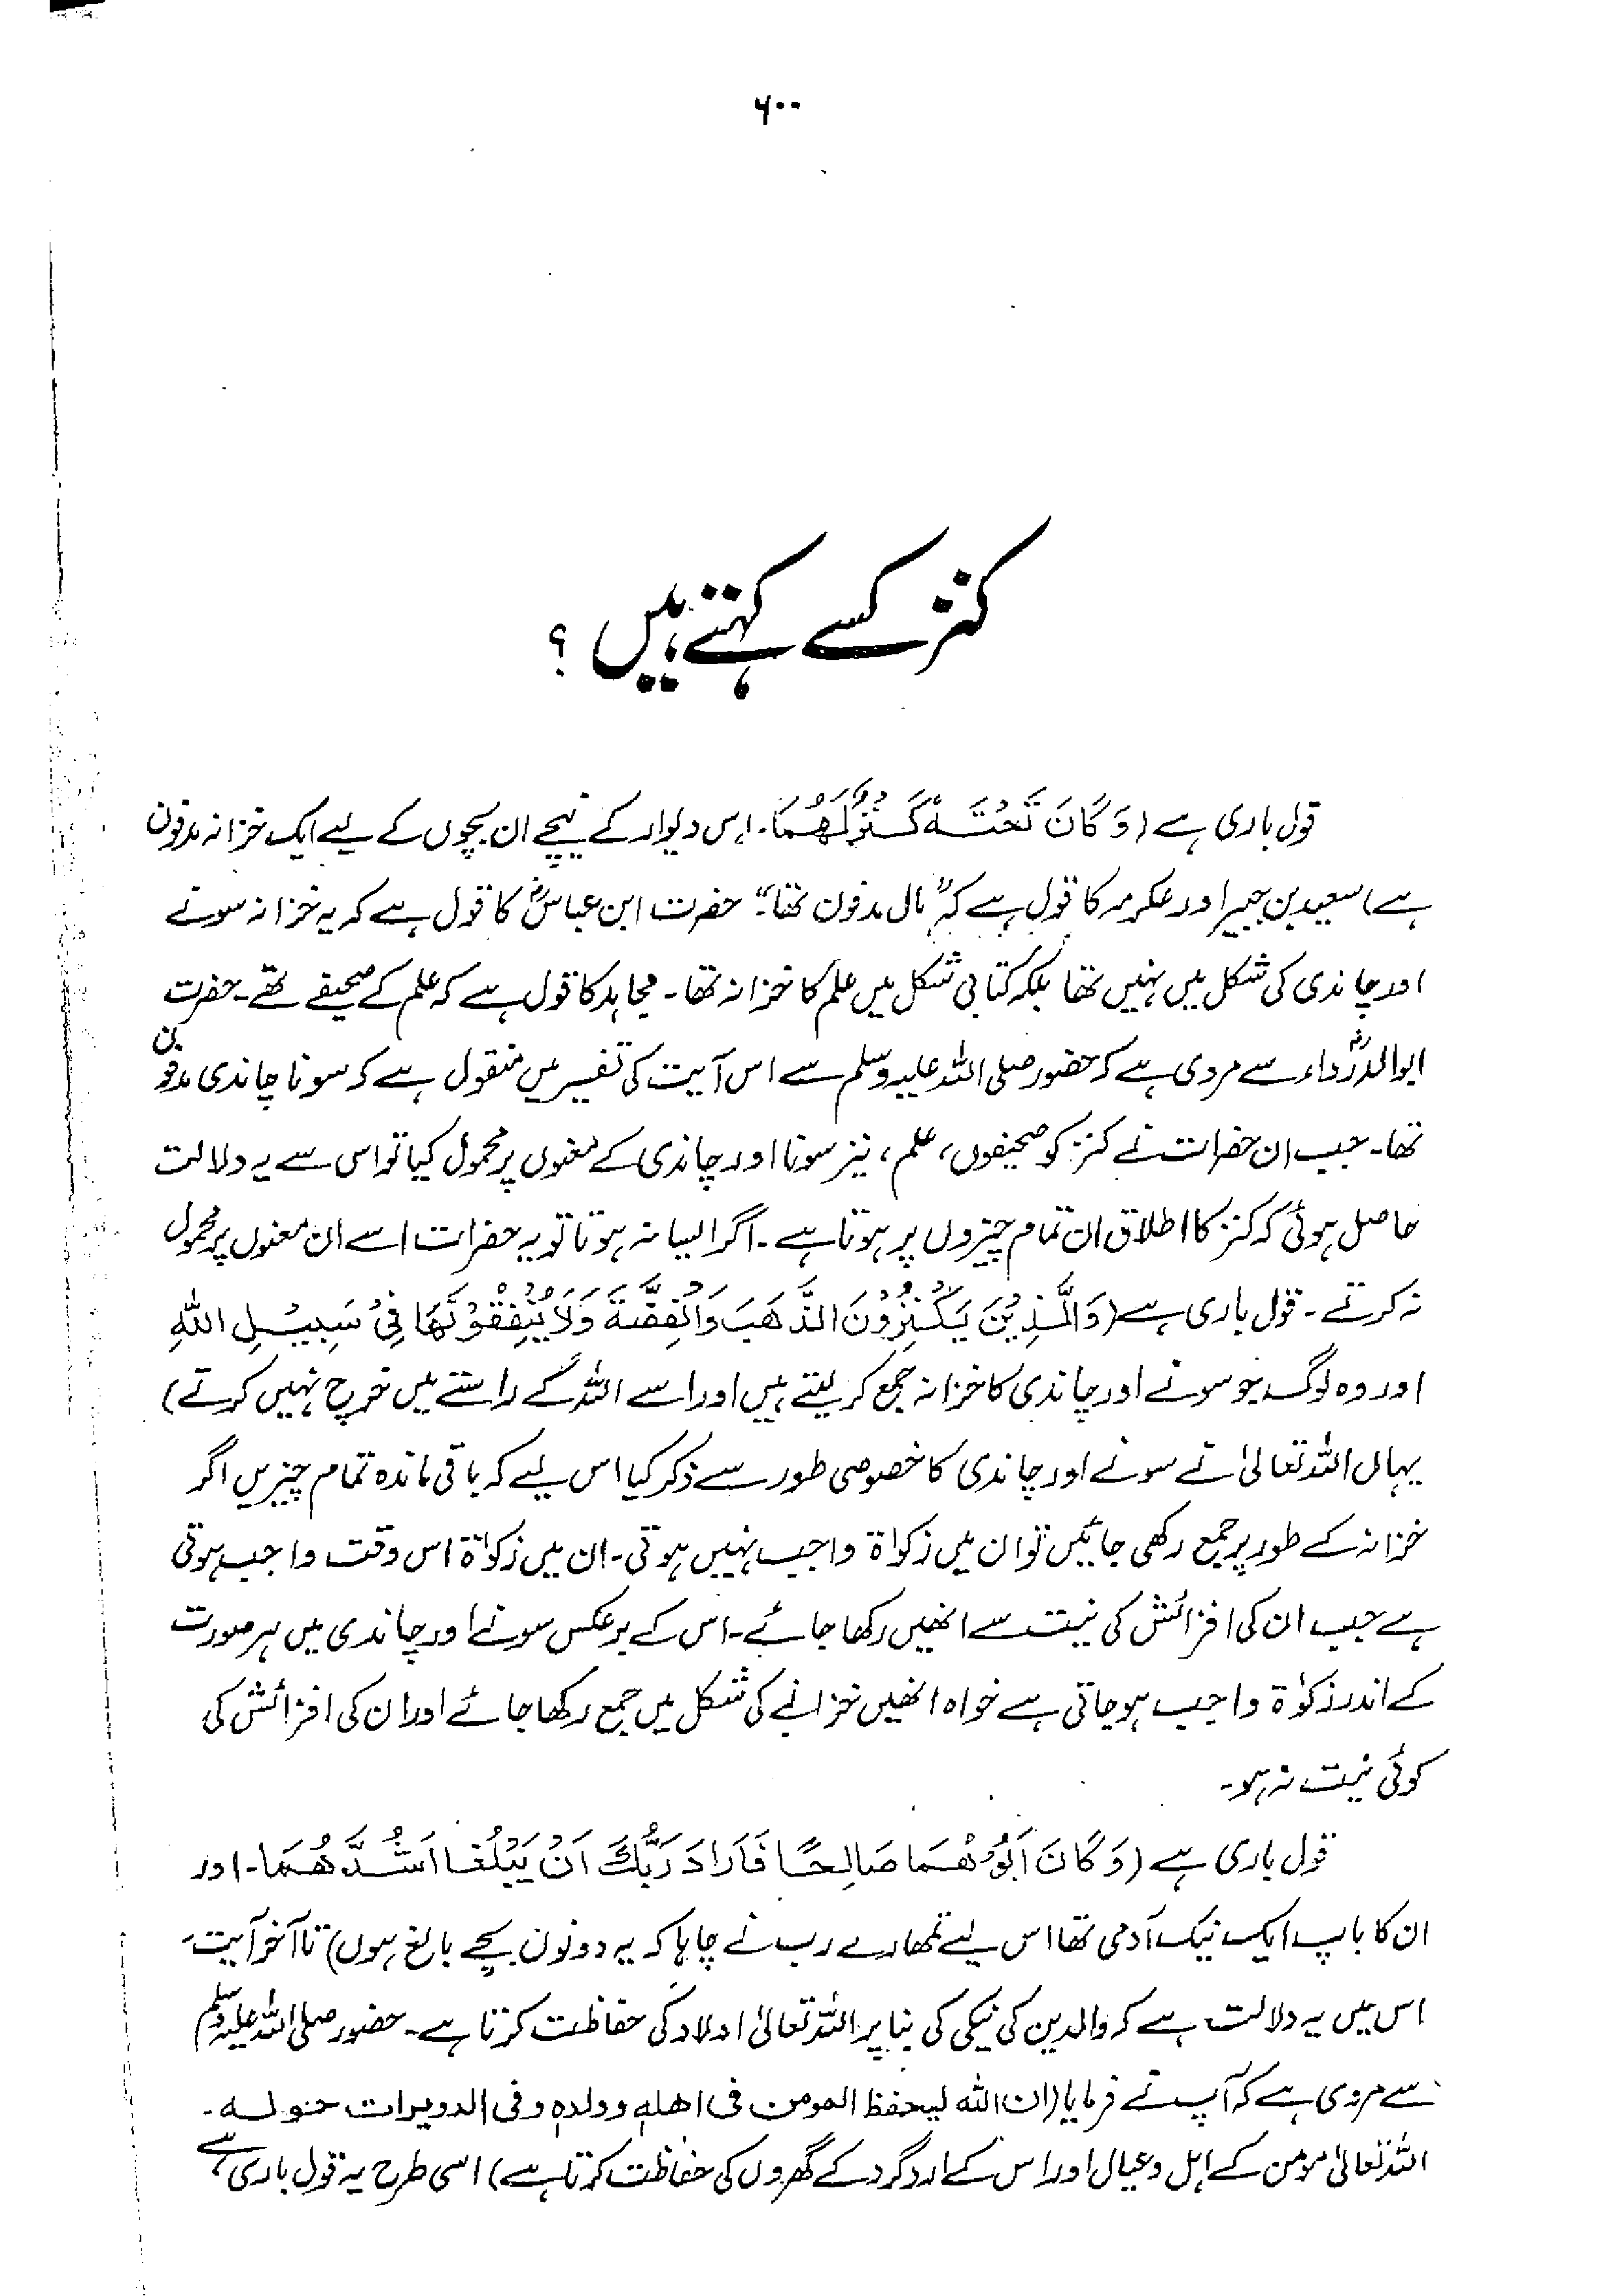 ۶۰۰
کنز کسے کہتے ہیں ؟
قول باری ہے (وَ كَانَ تَحْتَهٗ كَنْزٌ لَّهُمَا۔ اس دیوار کے نیچے ان بچوں کے لیے ایک خزانہ مدفون
ہے) سعید بن جبیر اور عکرمہ کا قول ہے کہ "مال مدفون تھا"۔ حضرت ابن عباسؓ کا قول ہے کہ یہ خزانہ سونے
اور چاندی کی شکل میں نہیں تھا بلکہ کتابی شکل میں علم کا خزانہ تھا۔ مجاہد کا قول ہے کہ علم کے صحیفے تھے۔ حضرت
ابوالدرداءؓ سے مروی ہے کہ حضور صلی اللہ علیہ وسلم سے اس آیت کی تفسیر میں منقول ہے کہ سونا چاندی مدفون
تھا۔ جب ان حضرات نے کنز کو صحیفوں، علم، نیز سونا اور چاندی کے معنوں پر محمول کیا تو اس سے یہ دلالت
حاصل ہوئی کہ کنز کا اطلاق ان تمام چیزوں پر ہوتا ہے۔ اگر ایسا نہ ہوتا تو یہ حضرات اسے ان معنوں پر محمول
نہ کرتے۔ قول باری ہے (وَالَّذِيْنَ يَكْنِزُوْنَ الذَّهَبَ وَالْفِضَّةَ وَلَا يُنْفِقُوْنَهَا فِيْ سَبِيْلِ اللّٰهِ
اور وہ لوگ جو سونے اور چاندی کا خزانہ جمع کر لیتے ہیں اور اسے اللہ کے راستے میں خرچ نہیں کرتے)
یہاں اللہ تعالیٰ نے سونے اور چاندی کا خصوصی طور سے ذکر کیا اس لیے کہ باقی ماندہ تمام چیزیں اگر
خزانہ کے طور پر جمع رکھی جائیں تو ان میں زکواۃ واجب نہیں ہوتی۔ ان میں زکواۃ اس وقت واجب ہوتی
ہے جب ان کی افزائش کی نیت سے انھیں رکھا جائے۔ اس کے برعکس سونے اور چاندی میں ہر صورت
کے اندر زکوٰۃ واجب ہو جاتی ہے خواہ انھیں خزانے کی شکل میں جمع رکھا جائے اور ان کی افزائش کی
کوئی نیت نہ ہو۔
قول باری ہے (وَ كَانَ اَبُوْهُمَا صَالِحًا فَاَرَادَ رَبُّكَ اَنْ يَّبْلُغَا اَشُدَّهُمَا۔ اور
ان کا باپ ایک نیک آدمی تھا اس لیے تمھارے رب نے چاہا کہ یہ دونوں بچے بالغ ہوں) تا آخر آیت۔
اس میں یہ دلالت ہے کہ والدین کی نیکی کی بنا پر اللہ تعالیٰ اولاد کی حفاظت کرتا ہے۔ حضور صلی اللہ علیہ وسلم
سے مروی ہے کہ آپ نے فرمایا (ان الله ليحفظ المومن فى اهله وولده وفى الدويرات حوله۔
اللہ تعالیٰ مومن کے اہل و عیال اور اس کے ارد گرد کے گھروں کی حفاظت کرتا ہے) اسی طرح یہ قول باری ہے